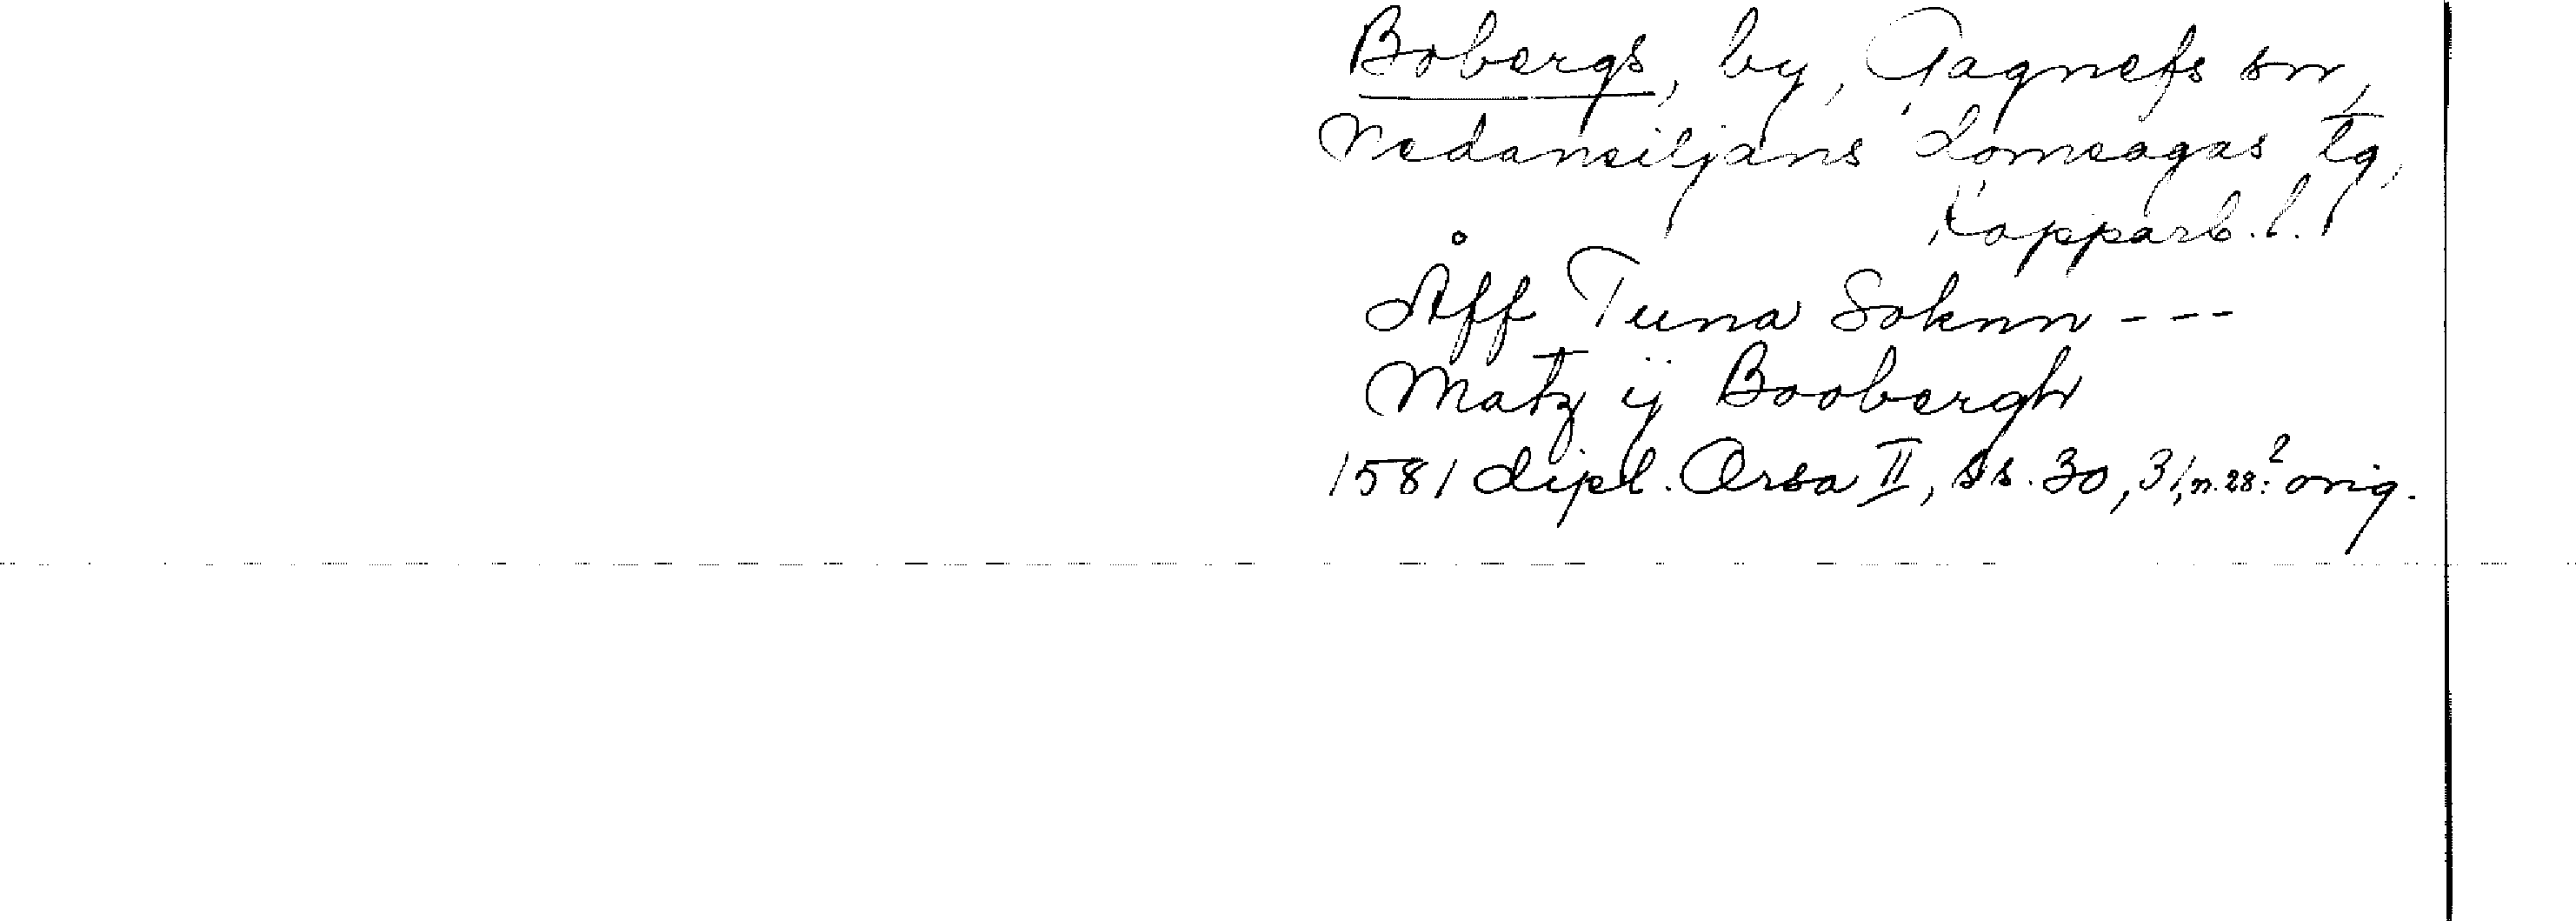 Bobergs, by, Gagnefs sn,
Nedansiljans domsagas tg,
Kopparb. l.
Åff Tuna Soknn - - -
Matz ij Boobergh
1581 dipl. Orsa II, ss. 30, 31, n. 28:2 orig.